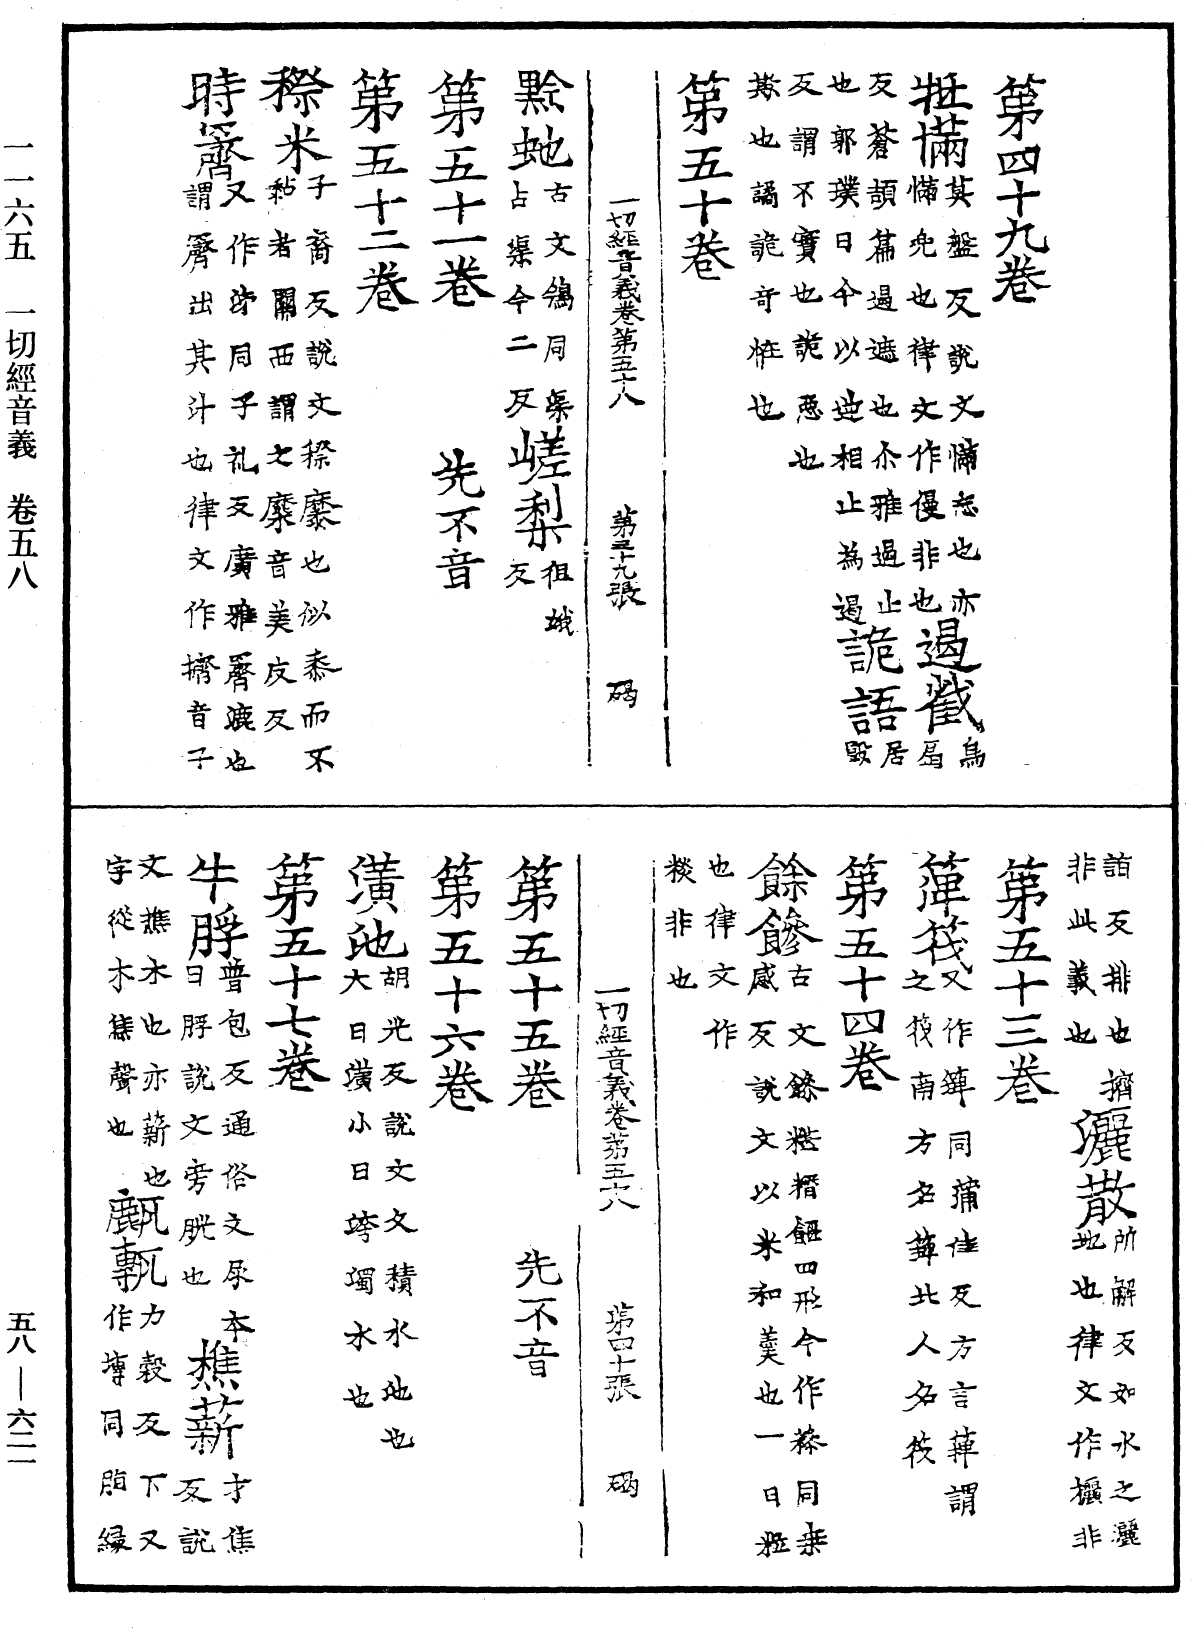 一一六五　一切經音義　卷五八
五八—六二一
第四十九卷
㽎㒼莫盤反說文㒼忘也亦
㒼兜也律文作慢非也遏截烏
反蒼頡篇遏遮也尒雅遏止
也郭璞曰今以逆相止為遏詭語居毀
反謂不實也詭惡也
欺也譎詭奇恠也
第五十卷
一切經音義卷第五十八　第三十九張　碣
黔虵古文鴿同渠
占渠今二反嵯梨徂娥反
第五十一卷　先不音
第五十二卷
穄米子裔反說文穄穈也似黍而不
黏者關西謂之穈音美皮反
時霽又作泲同子礼反廣雅霽漉也
謂霽出其汁也律文作擠音子
詣反排也擠
非此義也灑散所解反如水之灑
地也律文作欐非
第五十三卷
箄筏又作箄同蒲佳反方言箄謂
之筏南方名箄北人名筏
第五十四卷
餘饊古文餘糂糣䭃四形今作糝同桑
感反說文以米和羹也一曰粒
也律文作
糉非也
一切經音義卷第五十八　第四十張　碣
第五十五卷　先不音
第五十六卷
潢池胡光反說文文積水池也
大曰潢小曰洿濁水也
第五十七卷
牛脬普包反通俗文尿本
曰脬說文旁胱也樵薪才焦
反說
文樵木也亦薪也
字從木焦聲也甗甎力穀反下又
作塼同脂緣